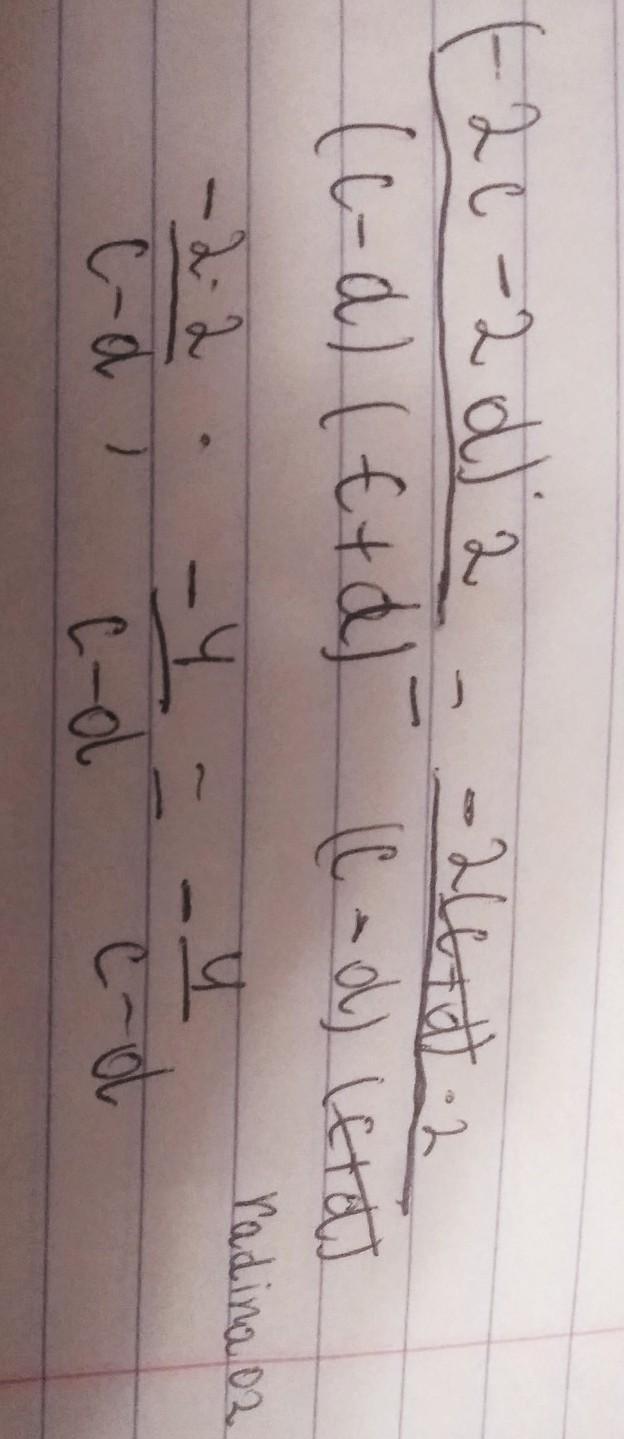 (-2c-2d)·2 / (c-d)(c+d) = -2(c+d)·2 / (c-d)(c+d)
-2·2 / c-d , -4 / c-d = -4 / c-d
radina02